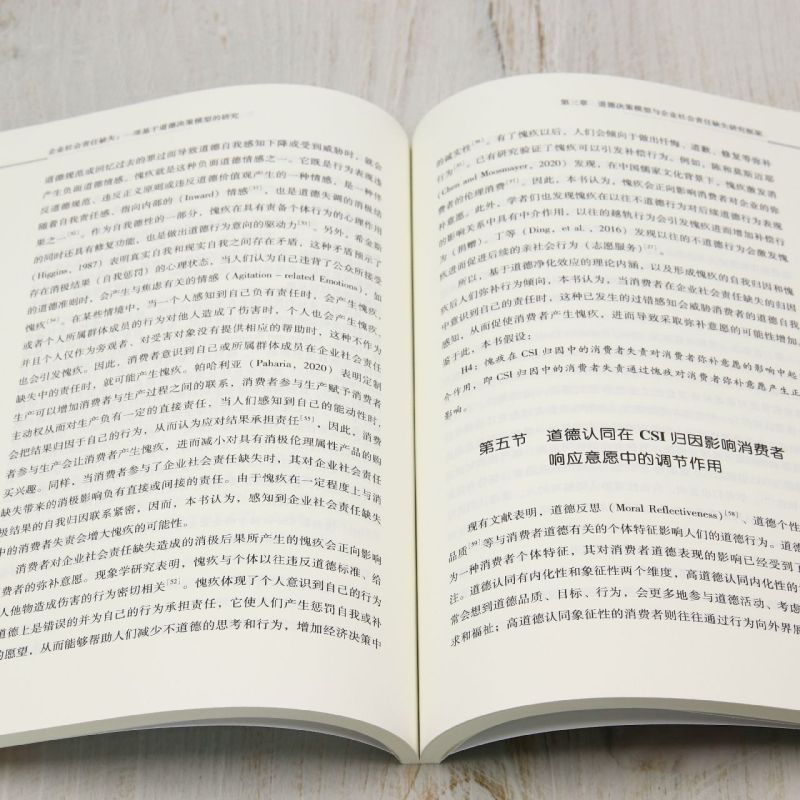 企业社会责任缺失：一项基于道德决策模型的研究
道德规范或回忆过去的罪过而导致道德自我感知下降或受到威胁时，就会
产生负面道德情感。愧疚就是这种负面道德情感之一。它既是行为表现违
反道德规范、违反正义原则或违反道德价值观产生的一种情感，是一种伴
随着自我责任感、指向内部的（Inward）情感，也是道德失调的消极结
果之一。作为自我德性的一部分，愧疚在具有责备个体行为的心理作用
的同时还具有修复功能，也是做出道德行为意向的驱动力。另外，希金斯
(Higgins, 1987) 表明真实自我和现实自我之间存在矛盾，这种矛盾预示了
存在消极结果（自我惩罚）的心理状态，当人们认为自己违背了公众所接受
的道德准则时，会产生与焦虑有关的情感（Agitation – related Emotions)，如
愧疚。在某些情境中，当一个人感知到自己负有责任时，会产生愧疚，
或者个人所属群体成员的行为对他人造成了伤害时，个人也会产生愧疚，
并且个人仅作为旁观者、对受害对象没有提供相应的帮助时，这种不作为
也会引发愧疚。因此，消费者意识到自己或所属群体成员在企业社会责任
缺失中的责任时，就可能产生愧疚。帕哈利亚（Paharia, 2020）表明定制
生产可以增加消费者与生产过程之间的联系，消费者参与生产赋予消费者
主动权从而对生产负有一定的直接责任，当人们感知到自己的能动性时，
会把结果归因于自己的行为，从而认为应对结果承担责任[55]，因此，消费
者参与生产会让消费者产生愧疚，进而减小对具有消极伦理属性产品的购
买兴趣。同样，当消费者参与了企业社会责任缺失时，其对企业社会责任
缺失带来的消极影响负有直接或间接的责任。由于愧疚在一定程度上与消
极结果的自我归因联系紧密，因而，本书认为，感知到企业社会责任缺失
中的消费者失责会增大愧疚的可能性。
消费者对企业社会责任缺失造成的消极后果所产生的愧疚会正向影响
费者的弥补意愿。现象学研究表明，愧疚与个体以往违反道德标准、给
人他物造成伤害的行为密切相关[52]。愧疚体现了个人意识到自己的行为
道德上是错误的并为自己的行为承担责任，它使人们产生惩罚自我或补
的愿望，从而能够帮助人们减少不道德的思考和行为，增加经济决策中
第三章　道德决策模型与企业社会责任缺失研究框架
的诚实性。有了愧疚以后，人们会倾向于做出忏悔、道歉、修复等弥补
行为。已有研究验证了愧疚可以引发补偿行为。例如，陈和莫斯迈耶
(Chen and Moosmayer, 2020) 发现，在中国儒家文化背景下，愧疚激发消
费者的伦理消费。因此，本书认为，愧疚会正向影响消费者对企业的弥
补意愿。此外，学者们也发现愧疚在以往不道德行为对后续道德行为表现
的影响关系中具有中介作用，以往的越轨行为会引发愧疚进而增加补偿行
为（捐赠）。丁等（Ding, et al., 2016）发现以往的不道德行为会激发愧
疚进而促进后续的亲社会行为（志愿服务）。
所以，基于道德净化效应的理论内涵，以及形成愧疚的自我归因和愧
疚后人们弥补行为倾向，本书认为，当消费者在企业社会责任缺失的归因
中意识到自己的责任时，这种已发生的过错感知会威胁消费者的道德自我
感知，从而促使消费者产生愧疚，进而导致采取弥补意愿的可能性增加。
基于此，本书假设：
H4：愧疚在 CSI 归因中的消费者失责对消费者弥补意愿的影响中起
介作用，即 CSI 归因中的消费者失责通过愧疚对消费者弥补意愿产生正
影响。
第五节　道德认同在 CSI 归因影响消费者
响应意愿中的调节作用
现有文献表明，道德反思（Moral Reflectiveness）[58]、道德个性
品质[59]等与消费者道德有关的个体特征影响人们的道德行为。道德
为一种消费者个体特征，其对消费者道德表现的影响已经受到了
注。道德认同有内化性和象征性两个维度，高道德认同内化性的
常会想到道德品质、目标、行为，会更多地参与道德活动、考虑
求和福祉；高道德认同象征性的消费者则往往通过行为向外界展